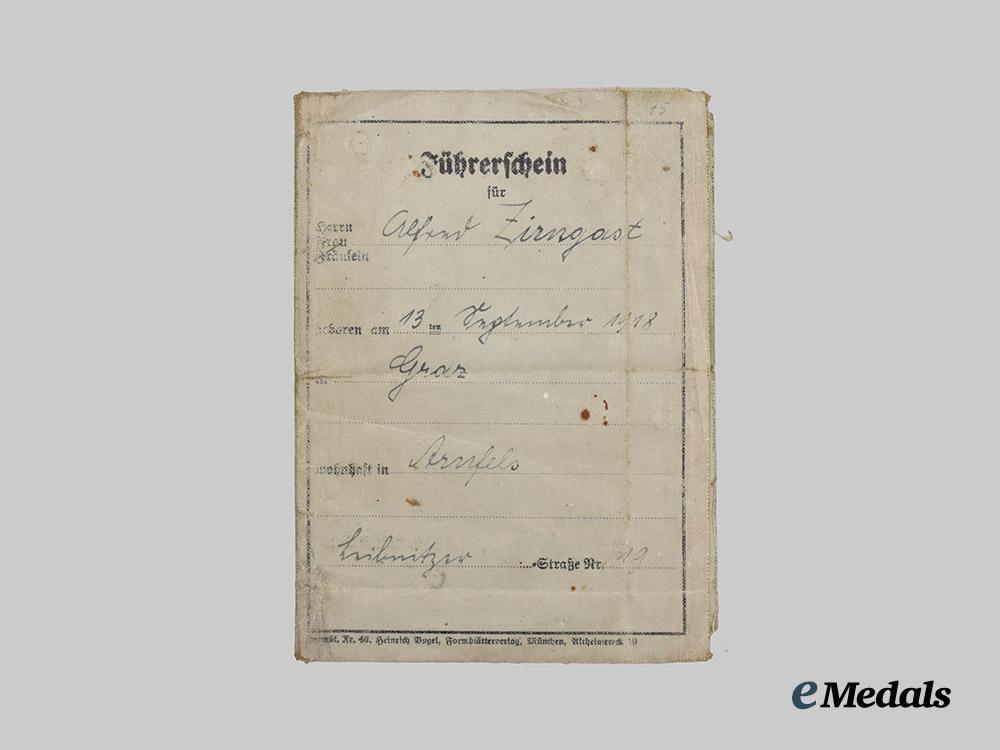 15
Führerschein
für
Herrn
Frau
Fräulein
Alfred Zirngast
geboren am 13ten September 1918
in Graz
wohnhaft in Arnfels
Leibnitzer -Straße Nr. 19
Nr. 46. Heinrich Vogel, Formblätterverlag, München, Altheimereck 19
eMedals